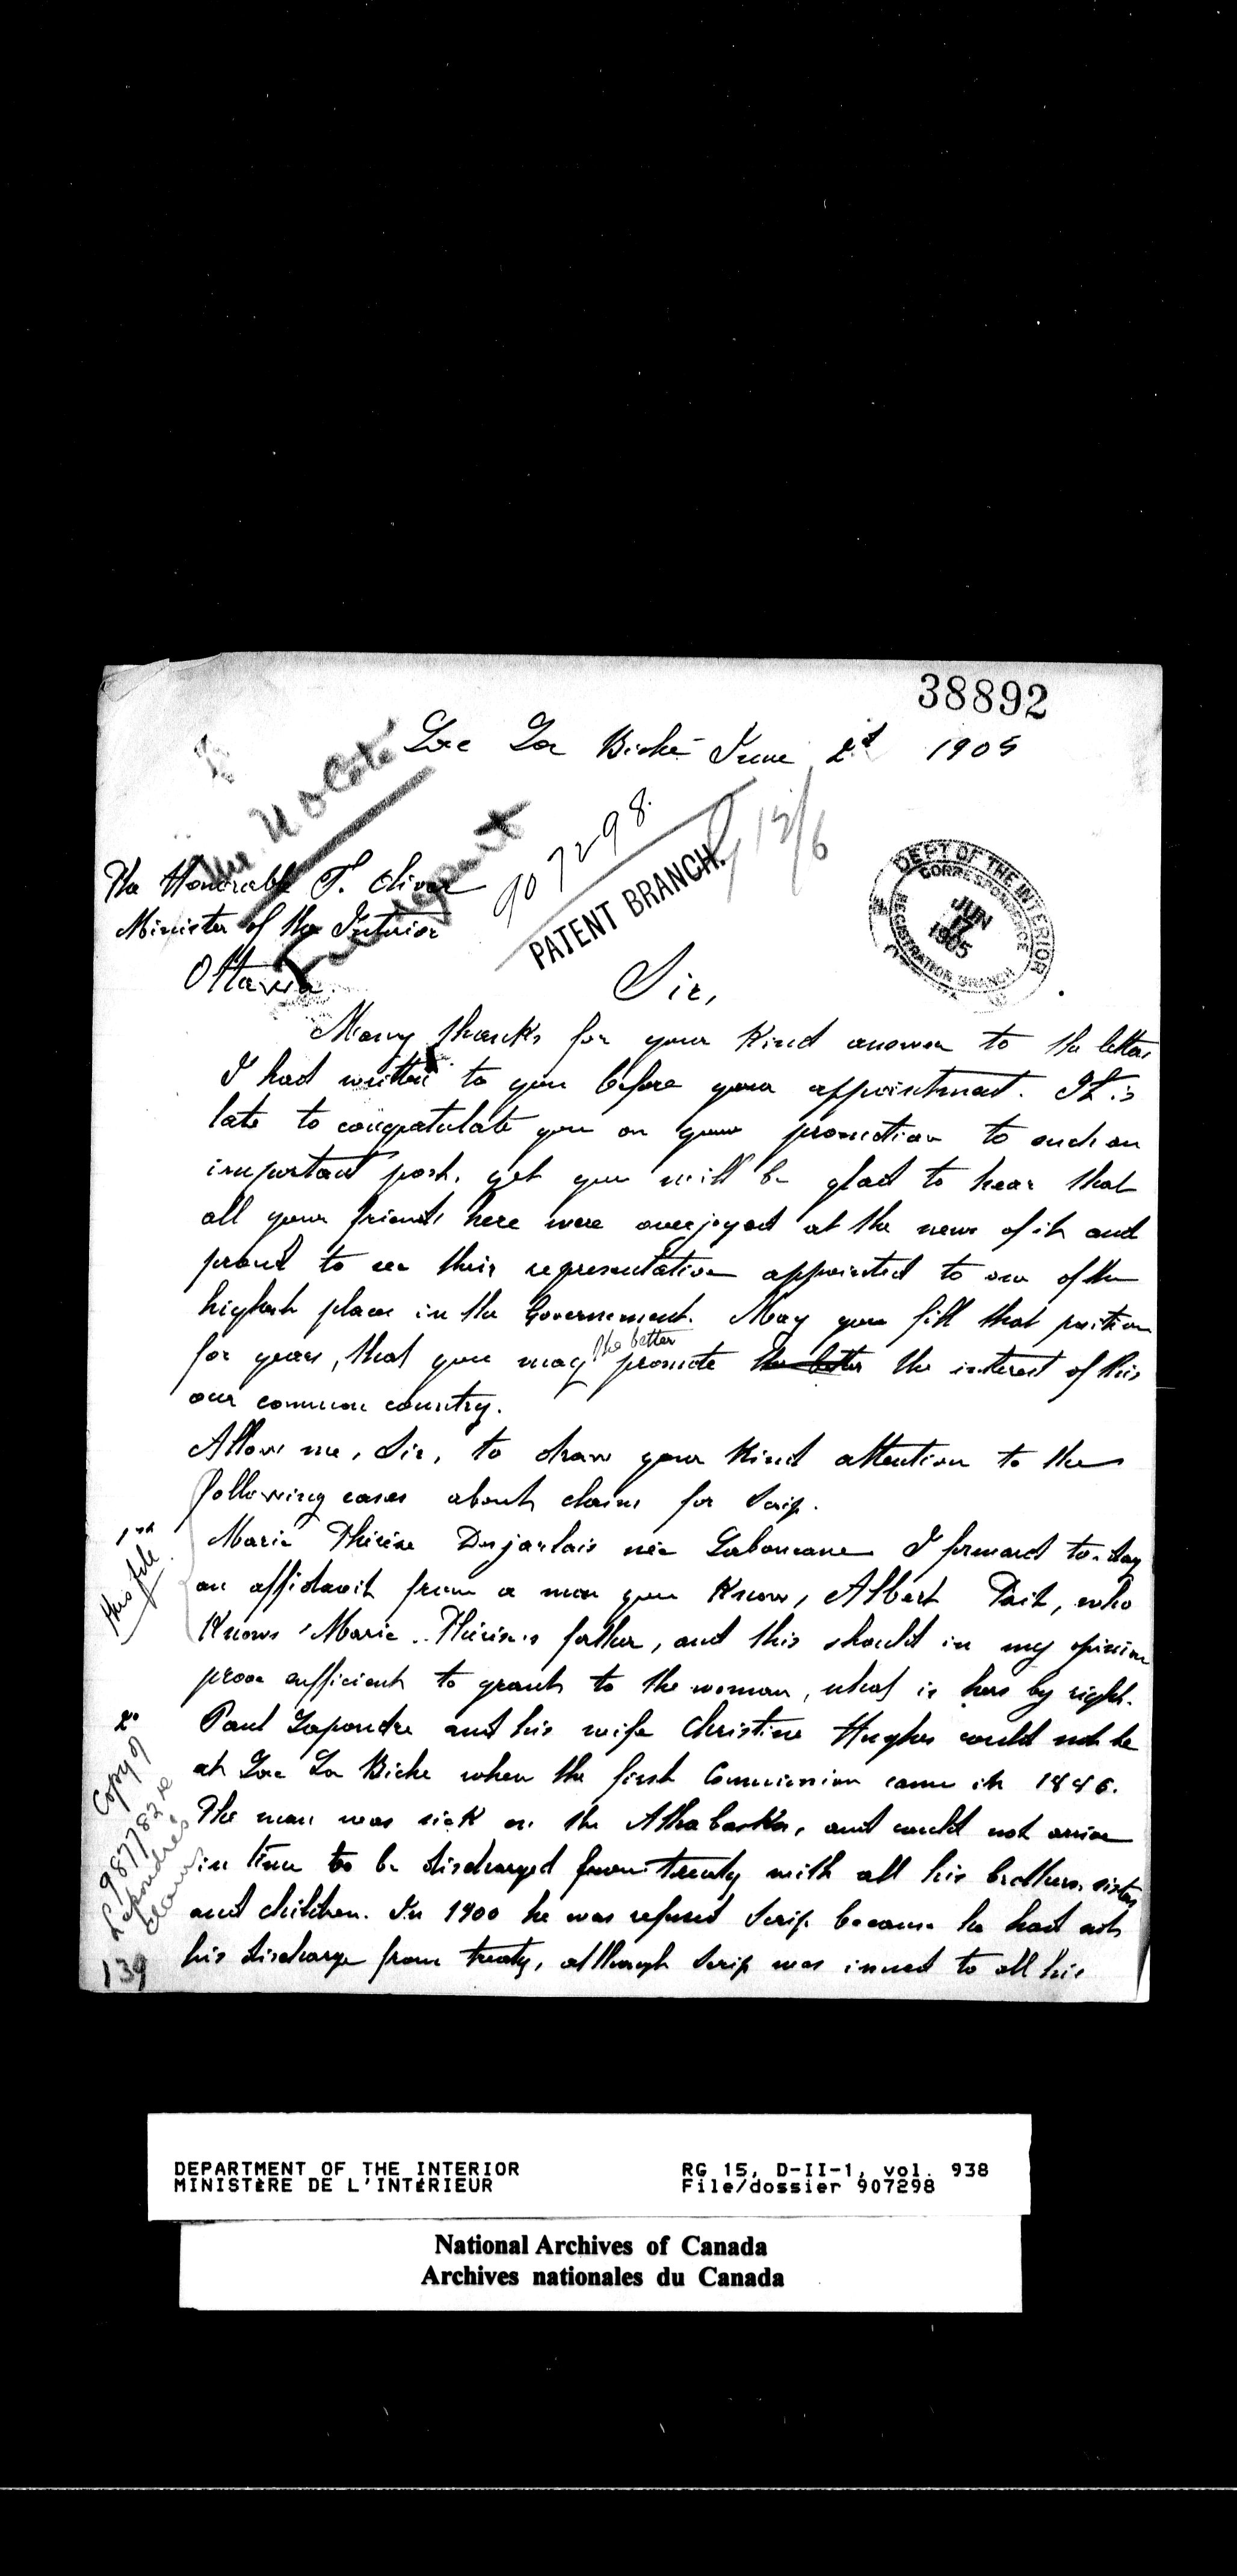 38892
Lac La Biche June 2d 1905
Mr. N. O. Coté
907298.
PATENT BRANCH.
12/6
DEPT OF THE INTERIOR
CORRESPONDENCE
JUN
1905
REGISTRATION BRANCH
The Honorable F. Oliver
Minister of the Interior
Ottawa.
Sir,
Many thanks for your kind answer to the letter
I had written to you before your appointment. It is
late to congratulate you on your promotion to such an
important post, yet you will be glad to hear that
all your friends here were overjoyed at the news of it and
proud to see their representative appointed to one of the
highest place in the Governement. May you fill that position
for years, that you may the better promote the better the interest of this
our common country.
Allow me, Sir, to draw your kind attention to the
following cases about claims for Scrip.
1st
this file.
Marie Thérèse Desjarlais née Laboucane I forward to-day
an affidavit from a man you know, Albert Tait, who
knows Marie Thérèse's father, and this should in my opinion
prove sufficient to grant to the woman, what is hers by right.
2°
Copy on
987782 re
Lapoudre's
claim
Paul Lapoudre and his wife Christine Hughes could not be
at Lac La Biche when the first Commission came in 1886.
The man was sick on the Athabaska, and could not arrive
in time to be discharged from treaty with all his brothers, sisters
and children. In 1900 he was refused Scrip because he had not
his discharge from treaty, although Scrip was issued to all his
139
DEPARTMENT OF THE INTERIOR
MINISTÈRE DE L'INTÉRIEUR
RG 15, D-II-1, vol. 938
File/dossier 907298
National Archives of Canada
Archives nationales du Canada